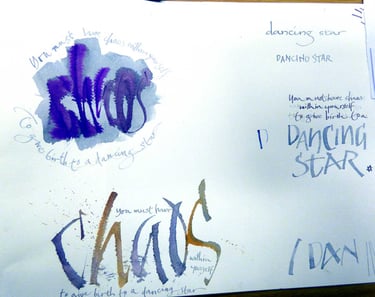 You must have chaos within yourself
chaos
to give birth to a dancing star
dancing star
DANCING STAR
You must have chaos
within yourself
to give birth to a
D DANCING
STAR
you must have
chaos
within
yourself
to give birth to a dancing star
DAN